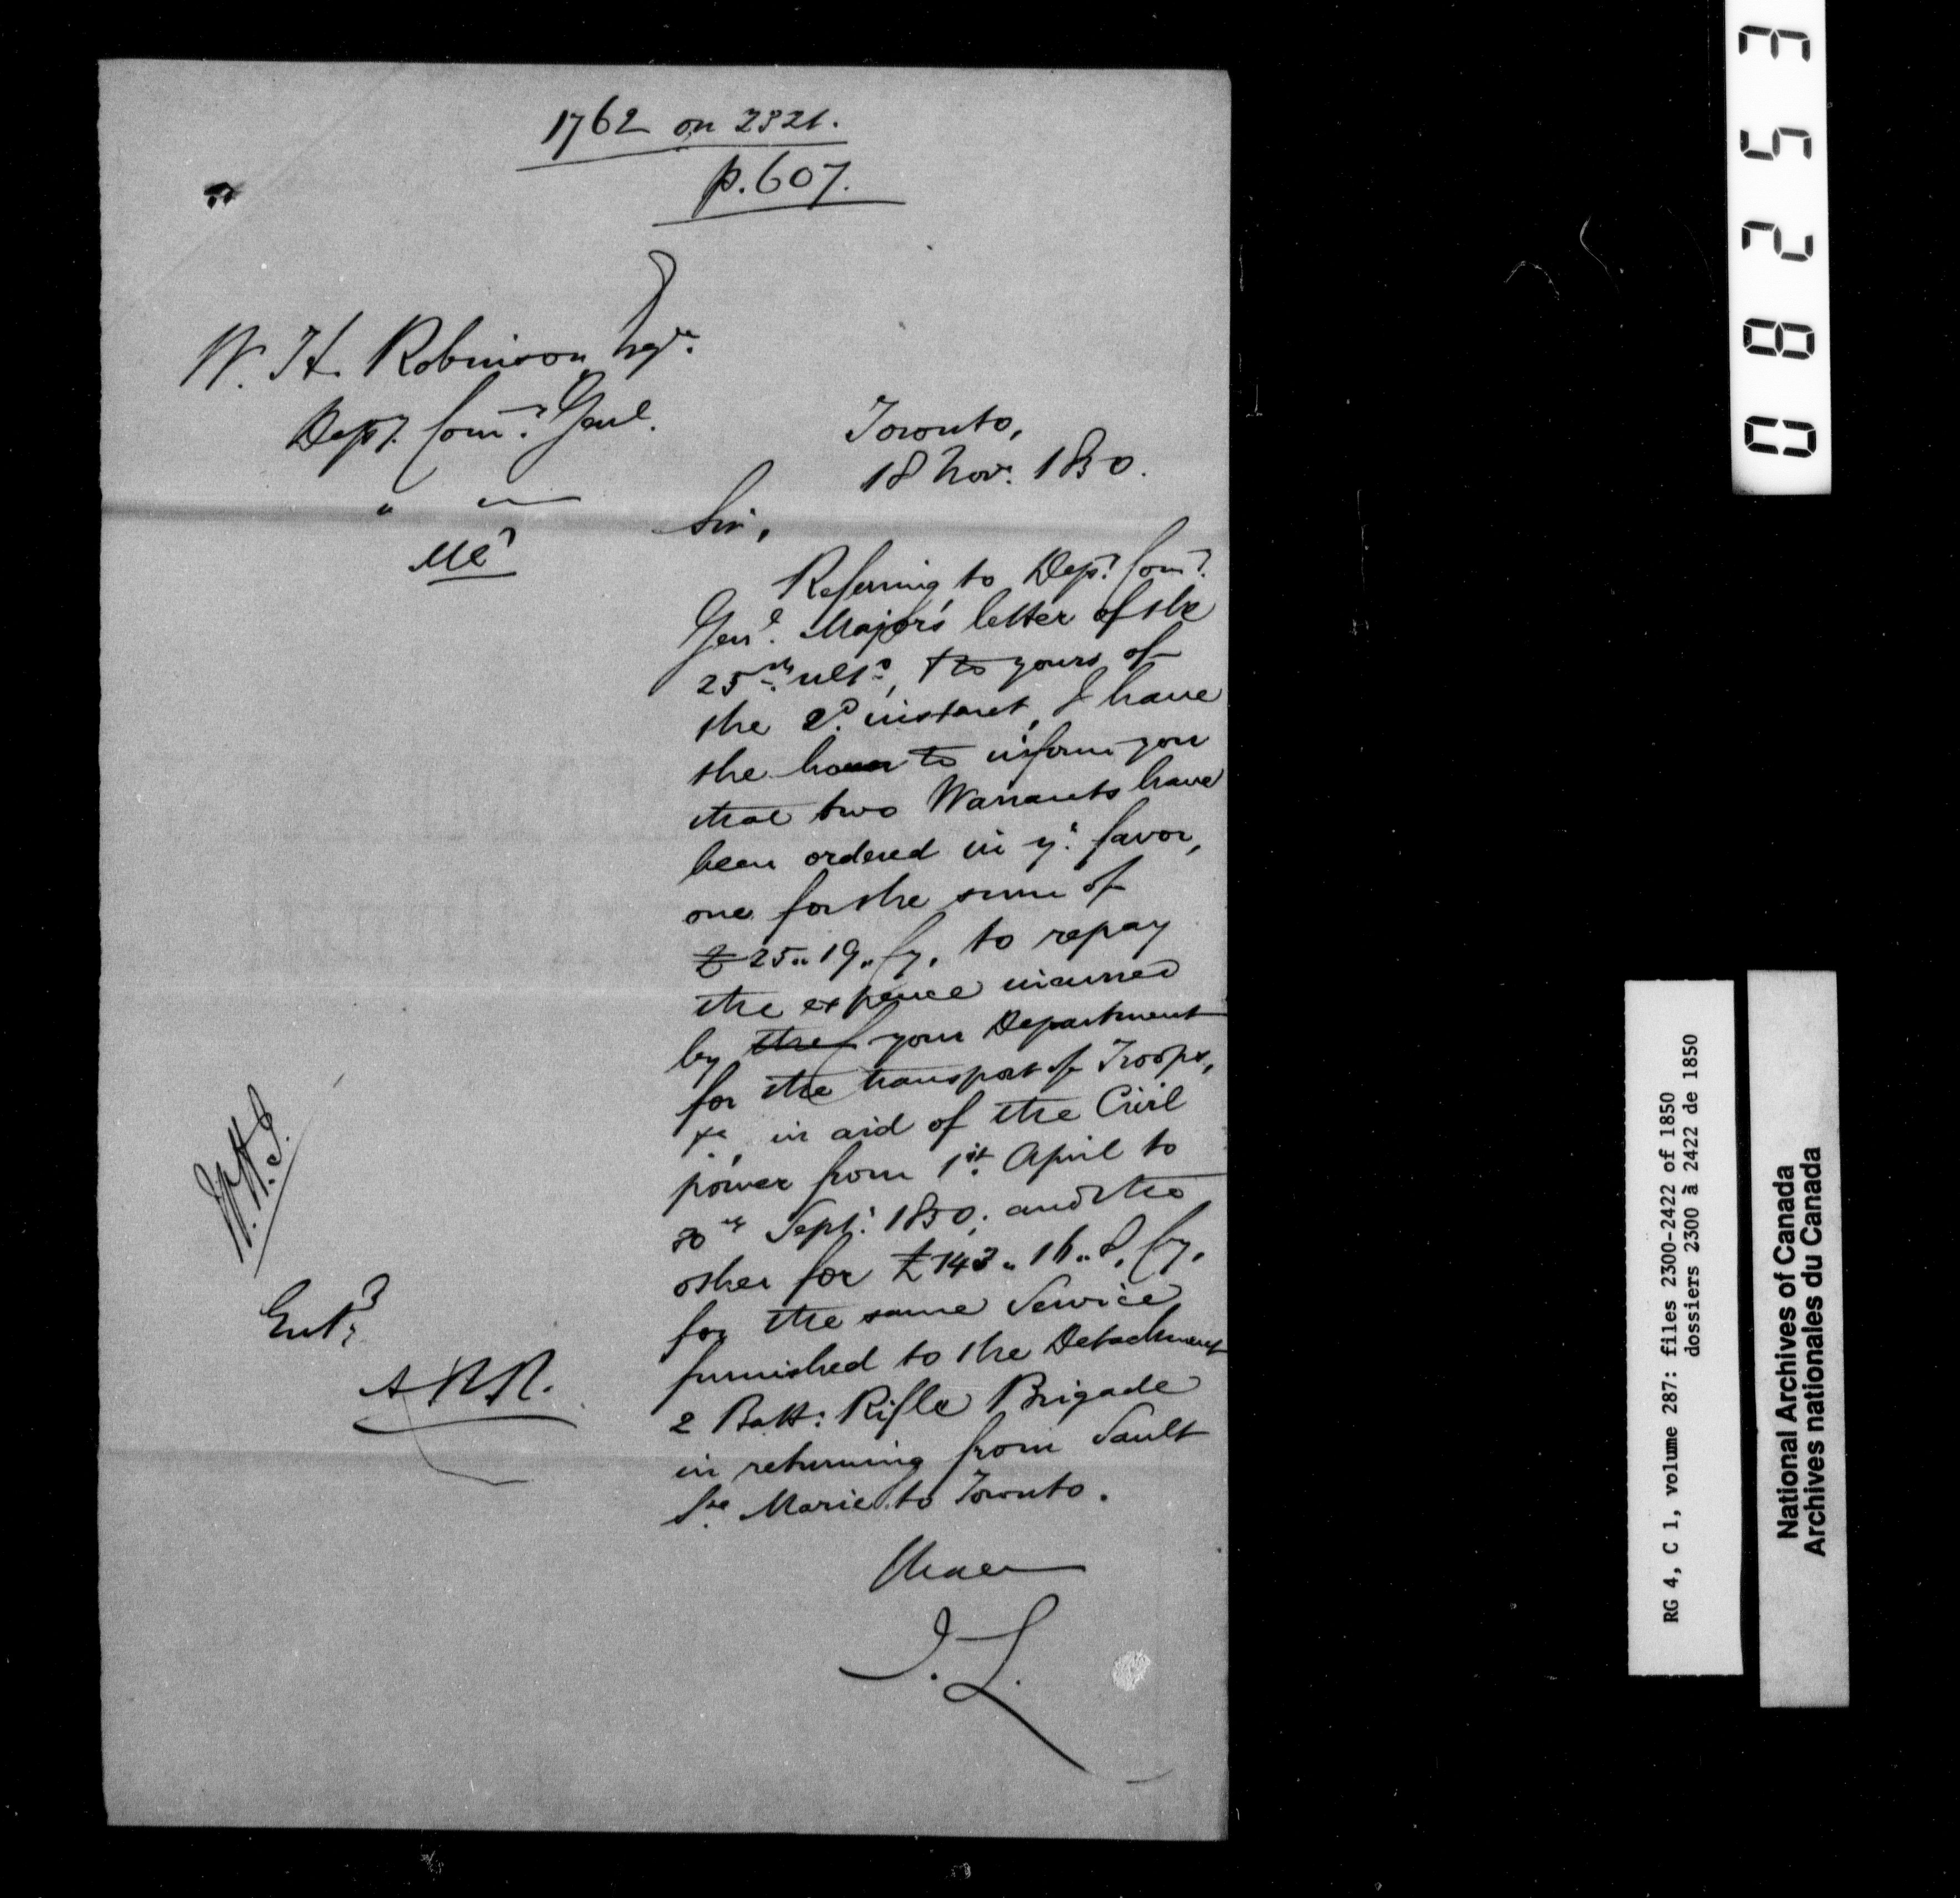 1762 on 2321.
p. 607.
W. H. Robinson Esqr.
Depy. Comy. Genl.
Ml
Toronto,
18 Novr. 1850.
Sir,
Referring to Depy. Comy.
Genl. Major's letter of the
25th ulto, & to yours of
the 2d. instant, I have
the honor to inform you
that two Warrants have
been ordered in yr. favor,
one for the sum of
£25..19.. Cy. to repay
the expence incurred
by the your Department
for the transport of Troops,
&c. in aid of the Civil
power from 1st. April to
30th Sept. 1850; and the
other for £143..16..8. Cy.
for the same Service
furnished to the Detachment
2 Batt: Rifle Brigade
in returning from Sault
Ste. Marie to Toronto.
J. L.
Entd.
08253
RG 4, C 1, volume 287: files 2300-2422 of 1850
dossiers 2300 à 2422 de 1850
National Archives of Canada
Archives nationales du Canada